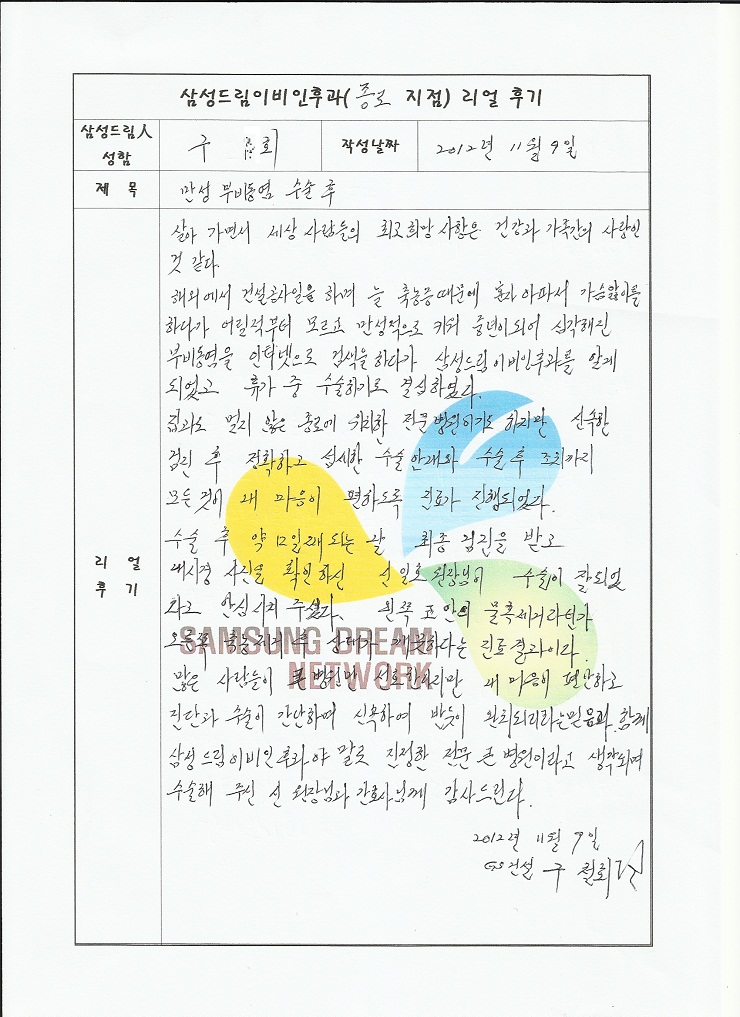 삼성드림이비인후과(종로 지점) 리얼 후기
삼성드림人 성함 구 회 작성날짜 2012년 11월 9일
제 목 만성 부비동염 수술 후
리 얼 후 기
살아 가면서 세상 사람들의 최고 희망 사항은 건강과 가족간의 사랑인
것 같다.
해외에서 건설공사일을 하며 늘 축농증때문에 혼자 아파서 가슴앓이를
하다가 어릴적부터 모르고 만성적으로 키워 중년이되어 심각해진
부비동염을 인터넷으로 검색을 하다가 삼성드림이비인후과를 알게
되었고 휴가 중 수술하기로 결심하였다.
집과도 멀지 않은 종로에 위치한 전문병원이기도 하지만 신속한
검진 후 정확하고 섬세한 수술안내와 수술후 조치까지
모든 것이 내 마음이 편하도록 진료가 진행되었다.
수술 후 약 12일째 되는 날 최종 검진을 받고
내시경 사진을 확인하신 선일호 원장님이 수술이 잘되었
다고 안심시켜 주셨다. 왼쪽 코안의 물혹제거라던가
오른쪽 축농제거 후 상태가 깨끗하다는 진료결과이다.
많은 사람들이 병원만 선호한다지만 내 마음이 편안하고
진단과 수술이 간단하며 신속하여 반듯이 완치되리라는믿음과 함께
삼성드림이비인후과야 말로 진정한 전문 큰 병원이라고 생각되며
수술해 주신 선 원장님과 간호사님께 감사드린다.
2012년 11월 9일
GS건설 구 회
SAMSUNG DREAM
NETWORK